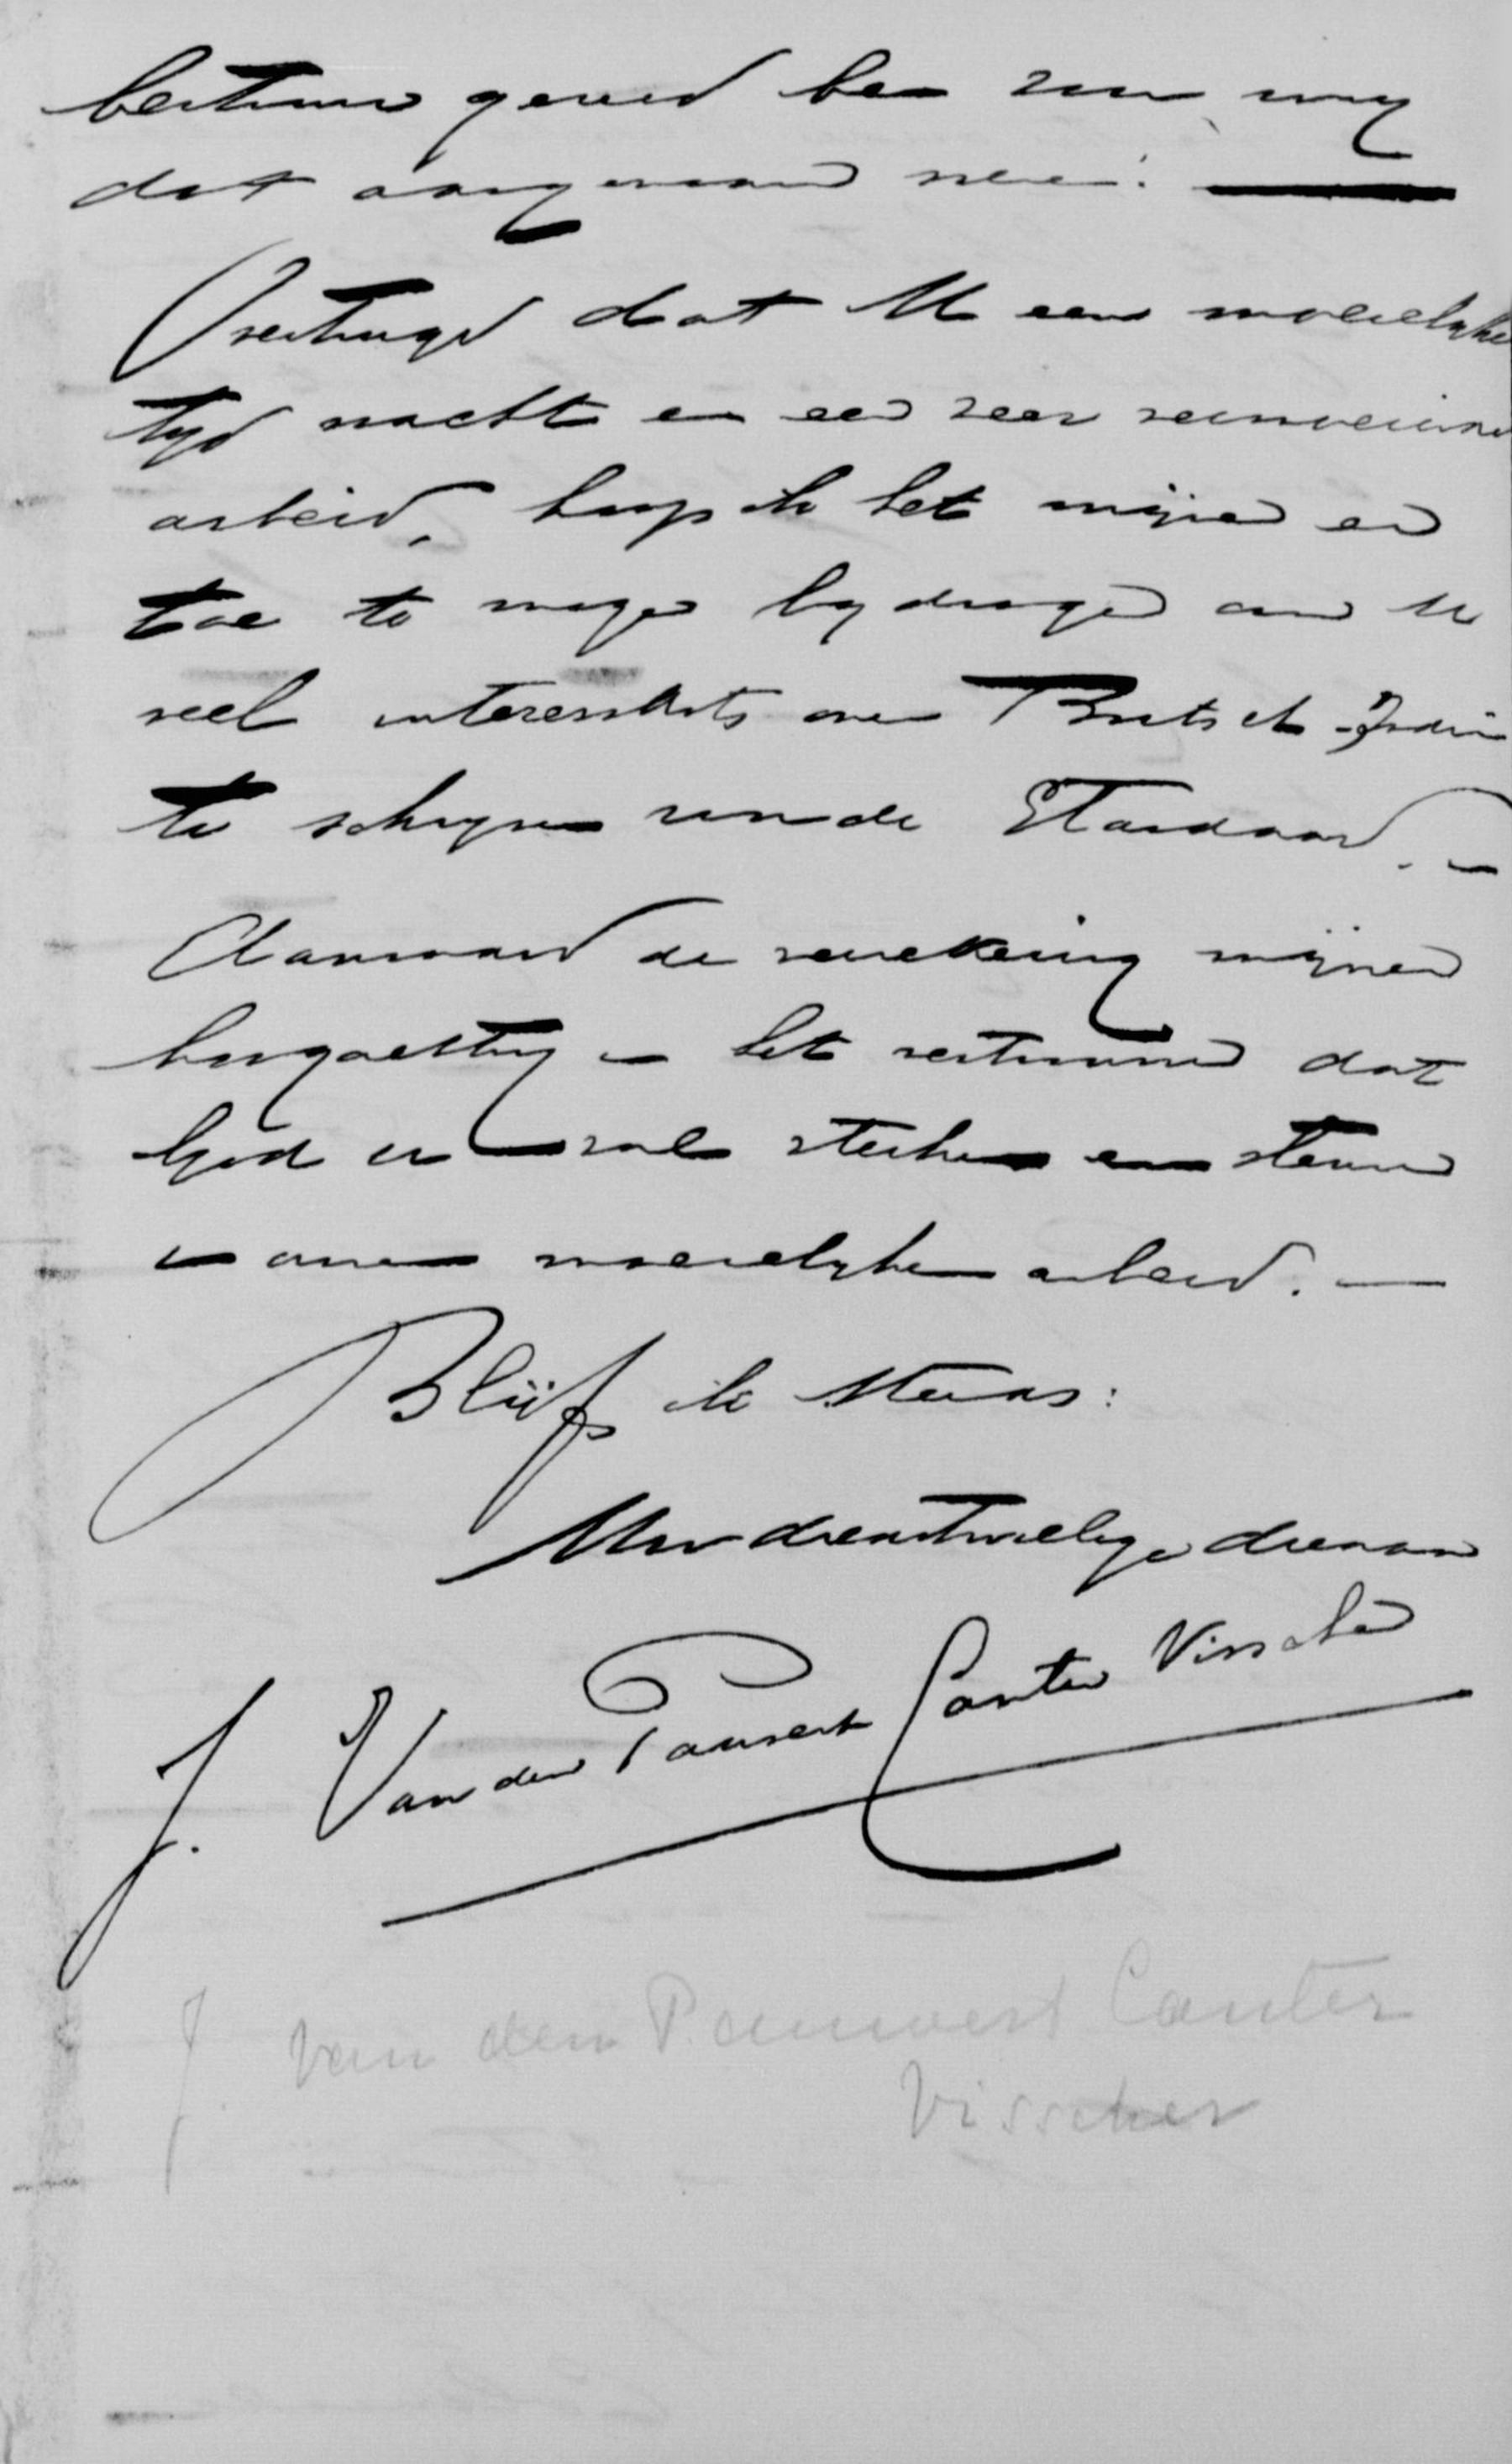 bestuur gereed ben zou mij
dat aangenaam
Overtuigd dat U een moeielyke
tyd wacht en een zeer vermoeiende
arbeid, hoop ik het mijne er
toe te mogen bydragen om U
veel interessants over Britsch-Indië
te schryven van de Standaard. –
Aanvaard de verzekering mijner
hoogachting en het vertrouwen dat
God U zal sterken en steunen
in uwen moeielyken arbeid. —
Blijf ik steeds:
Uw dienstwillige dienaar
J. Van den Pauvert Canter Visscher
J. van den Pauwert Canter
Visscher